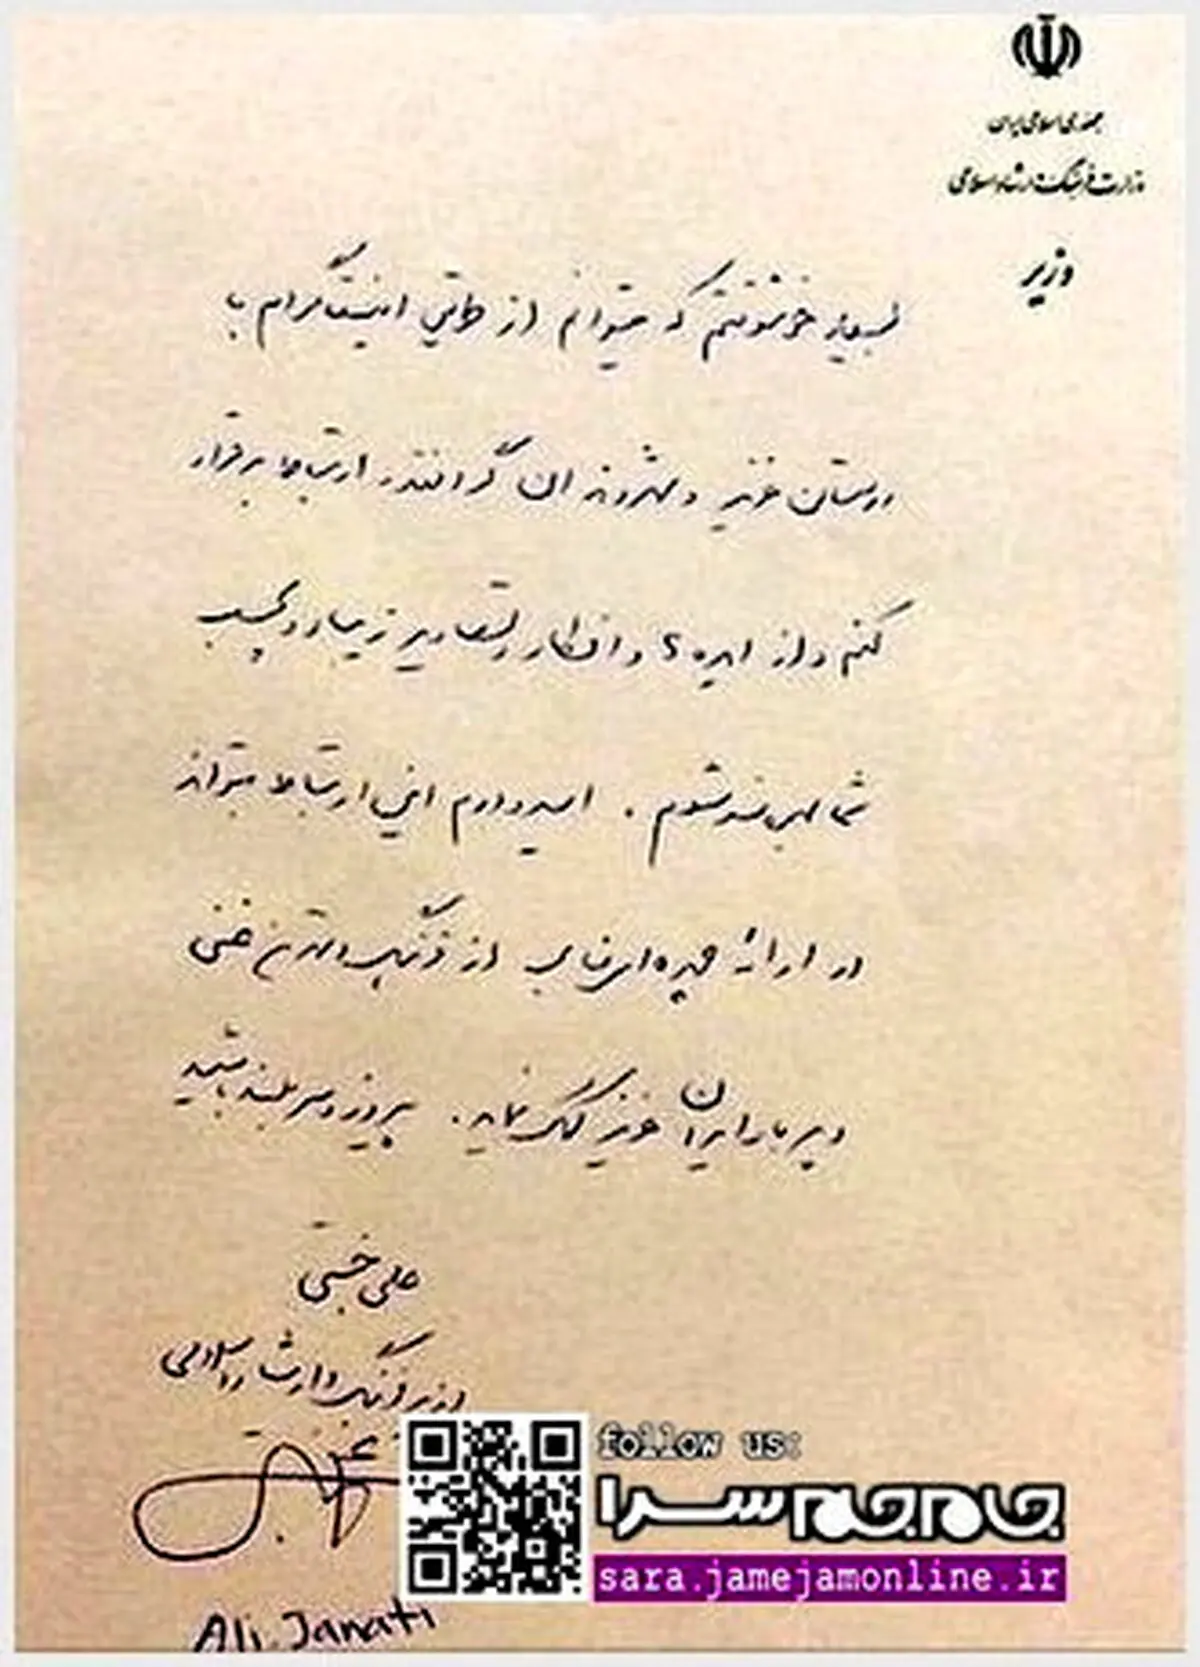 جمهوری اسلامی ایران
وزارت فرهنگ و ارشاد اسلامی
وزیر
بسیار خوشوقتم که میتوانم از طریق اینستاگرام با
دوستان عزیز و شهروندان گرانقدر ارتباط برقرار
کنم و از ایده ها و افکار و تصاویر زیبا و دلچسب
شما بهره‌مند شوم. امیدوارم این ارتباط بتواند
در ارائه چهره‌ای از فرهنگ و تمدن غنی
و پربار ایران عزیز کمک نماید. پیروز و سربلند باشید
علی جنتی
وزیر فرهنگ و ارشاد اسلامی
Ali. Janati
follow us:
جام جم سرا
sara.jamejamonline.ir